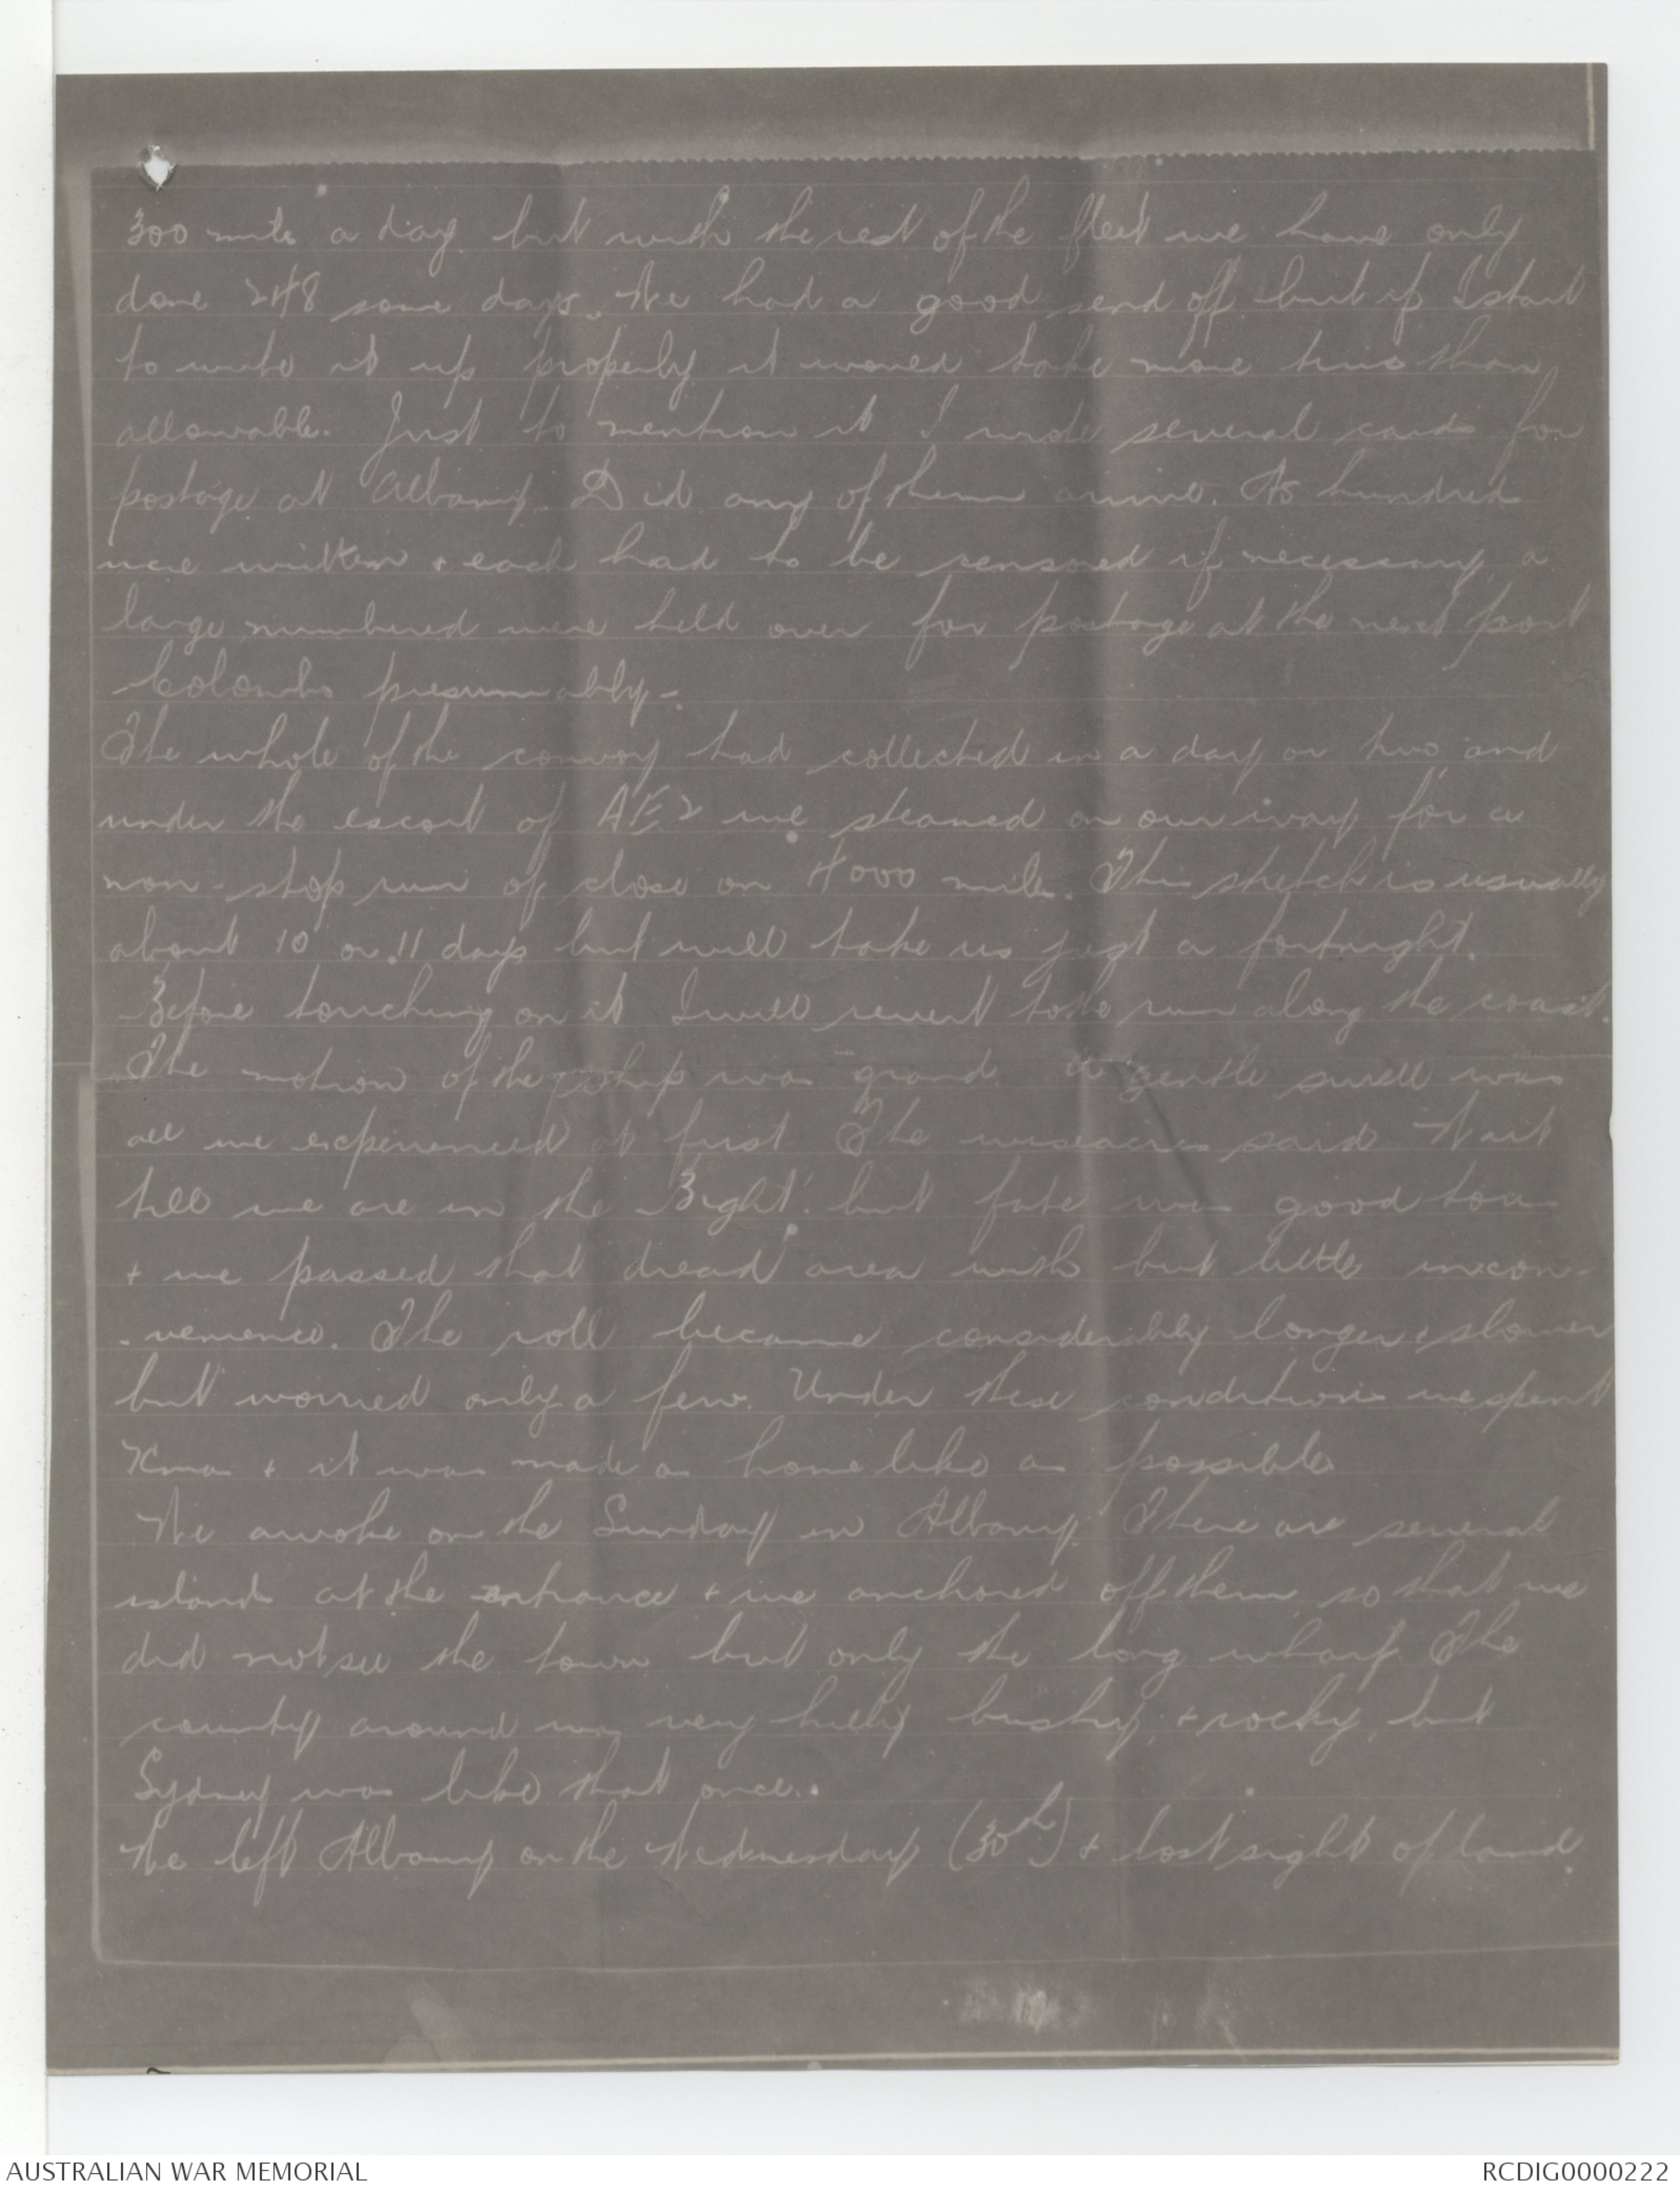 300 mile a day but with the rest of the fleet we have only
done 248 some days. We had a good send off but if I start
to write it up properly it would take more time than
allowable. Just to mention it I wrote several cards for
postage at Albany. Did any of them arrive. As hundred
were written & each had to be sensored if necessary a
large numbered were held over for postage at the next port
Colombo presumably.
The whole of the convoy had collected in a day or two and
under the escort of AE2 we steamed on our way for a
non-stop run of close on 4000 mile. This stretch is usually
about 10 or 11 days but will take us just a fortnight.
Before touching on it I will revert to the run along the coast.
The motion of the ship was grand. a gentle swell was
all we experienced at first The wiseacres said Wait
till we are in the Bight! but fate was good to us
+ we passed that dread area with but little incon-
-venience. The roll became considerably longer & slower
but worried only a few. Under these conditions we spent
Xmas & it was made as homelike as possible
We awoke on the Sunday in Albany. There are several
islands at the entrance + we anchored off them so that we
did not see the town but only the long wharf. The
county around was very hilly bushy, + rocky, but
Sydney was like that once.
We left Albany on the Wednesday (30th) + lost sight of land.
AUSTRALIAN WAR MEMORIAL
RCDIG0000222